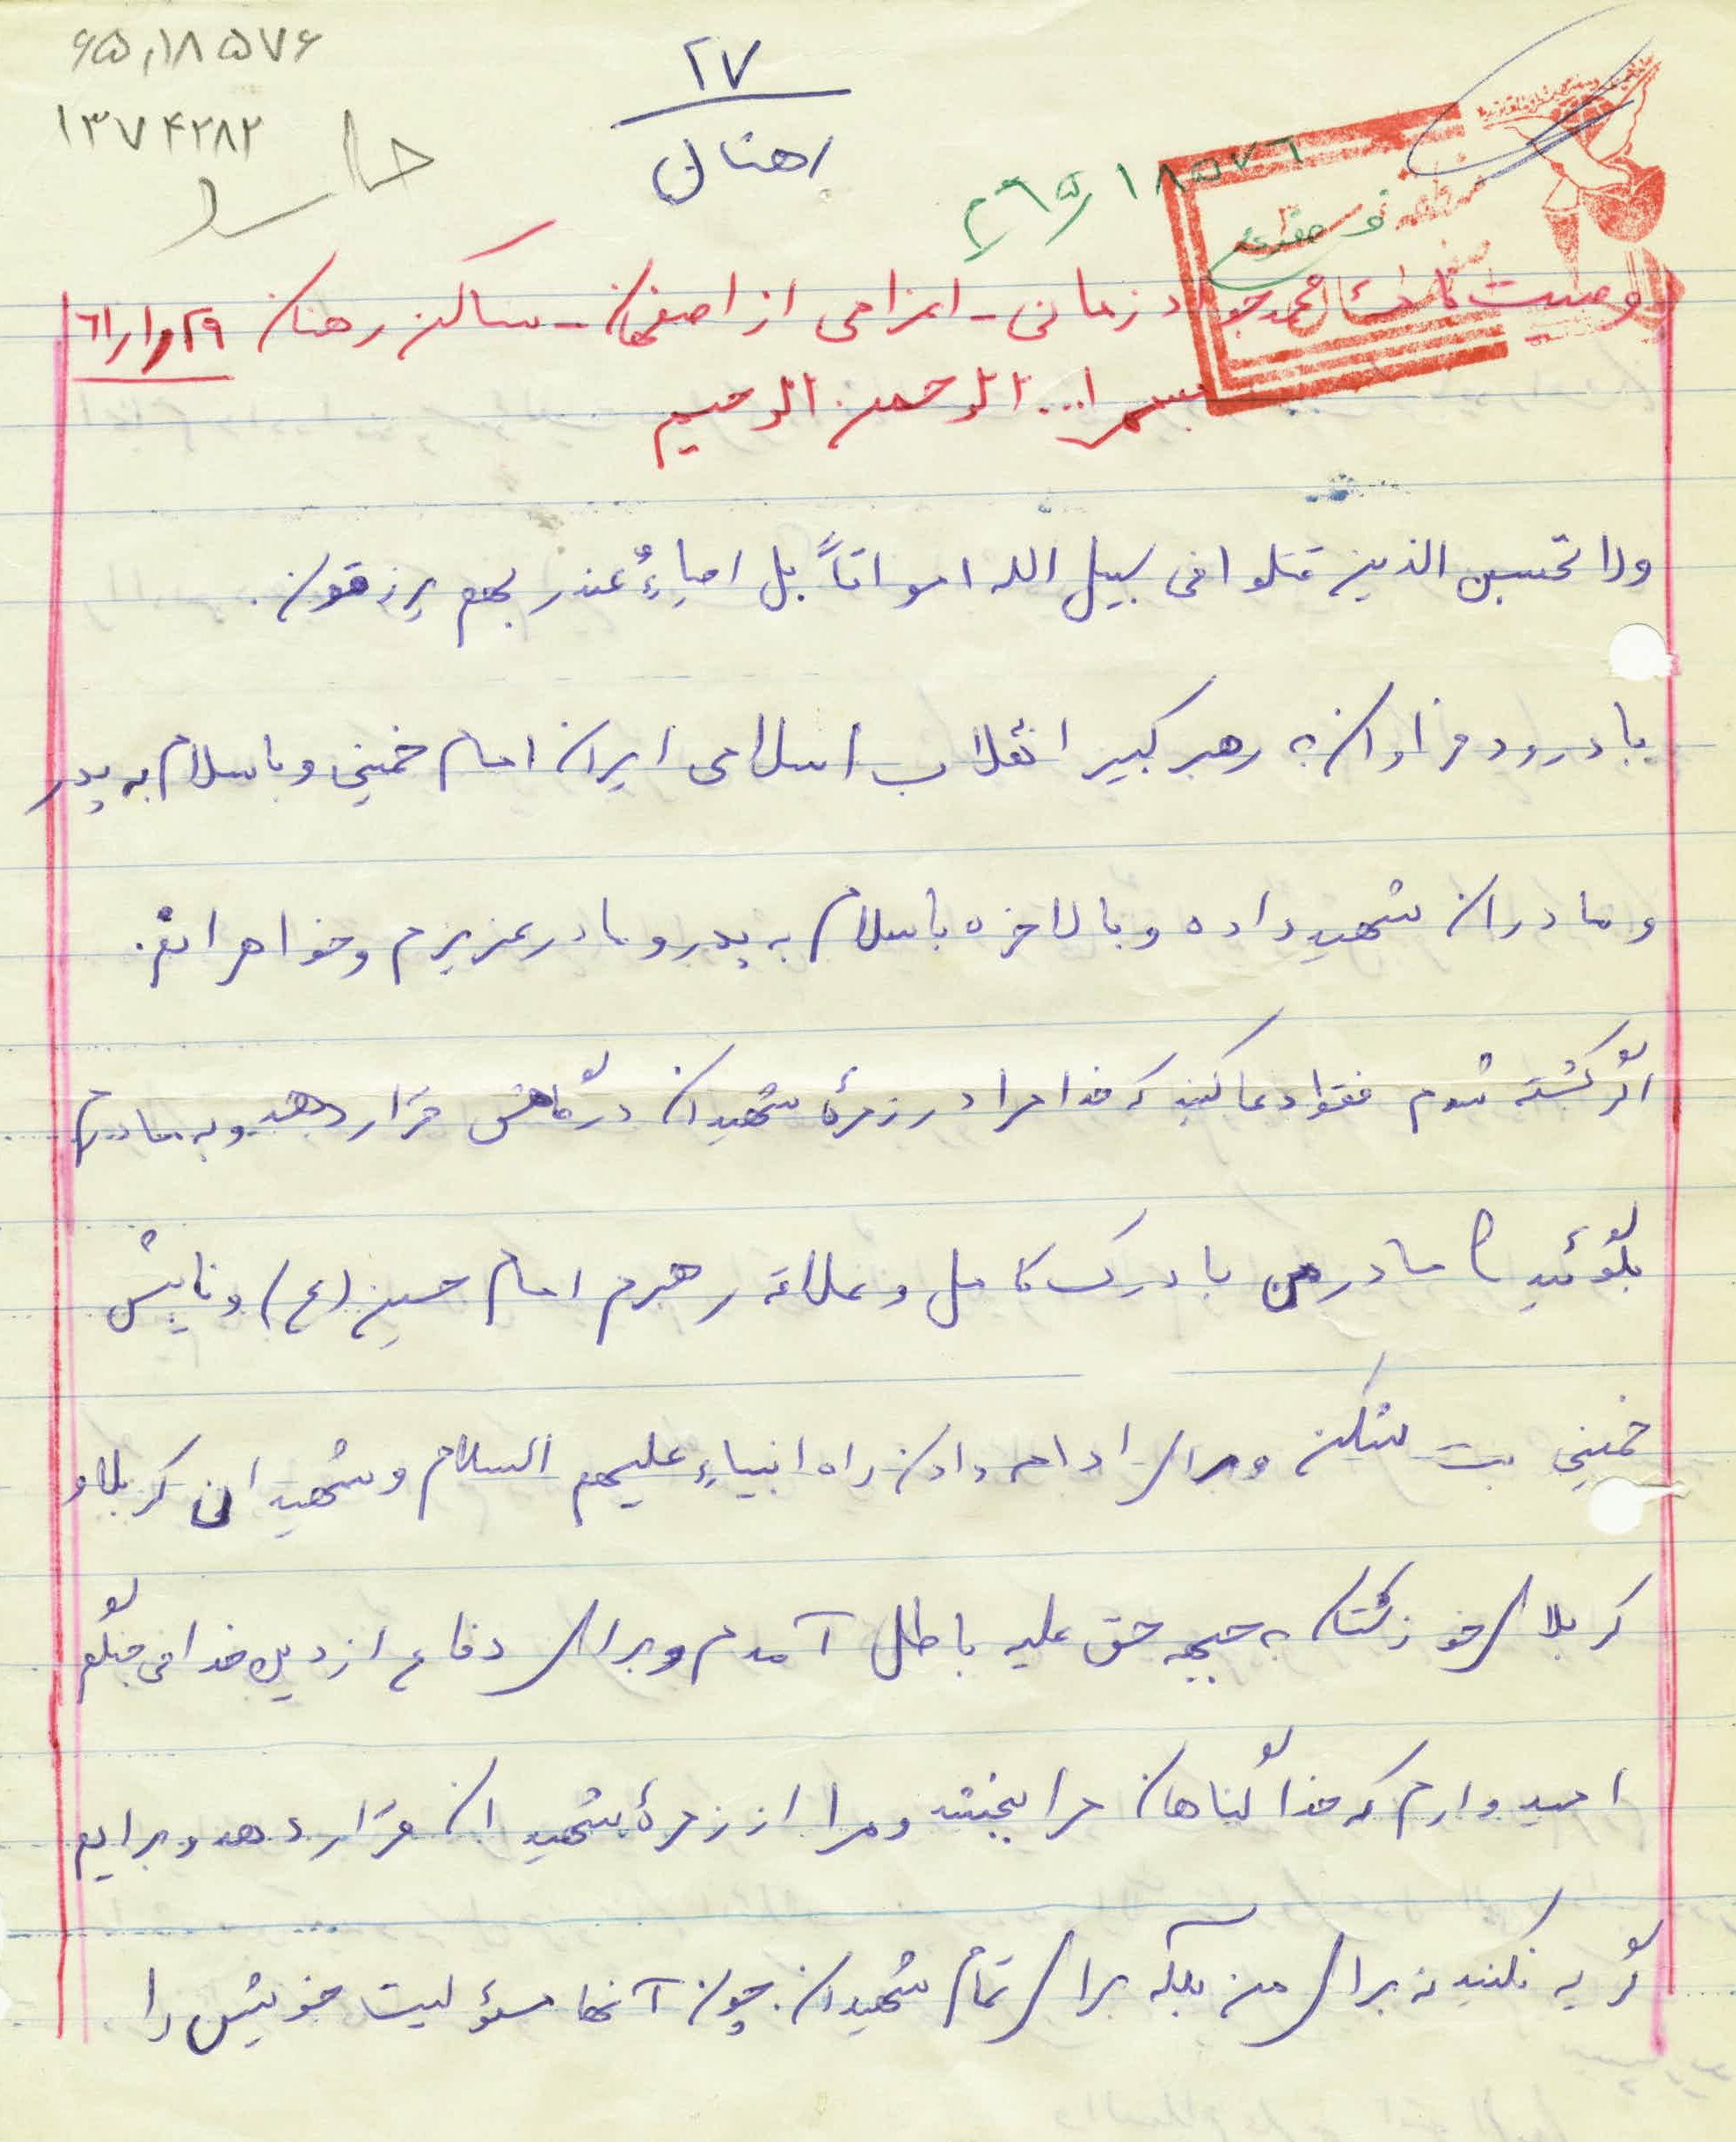 ۶۵٫۱۸۵۷۶
۱۳۷۴۲۸۲
۲۷
رهنان
۶۵٫۱۸۵۷۶
وصیت نامهٔ محمد جواد زمانی - اعزامی از اصفهان - ساکن رهنان ۲۹ر۱ر۶۱
بسم ا... الرحمن الرحیم
ولا تحسبن الذین قتلوا فی سبیل الله امواتاً بل احیاءٌ عند ربهم یرزقون.
با درود فراوان به رهبر کبیر انقلاب اسلامی ایران امام خمینی و با سلام به پدر
و مادران شهید داده و بالاخره با سلام به پدر و مادر عزیزم و خواهرانم.
اگر کشته شوم فقط دعا کنید که خدا مرا در زمرهٔ شهیدان درگاهش قرار دهد و به مادرم
بگوئید که مادر من با درک کامل و علاقه رهبرم امام حسین (ع) و نایبش
خمینی بت شکن و برای ادامه دادن راه انبیاء علیهم السلام و شهیدان کربلا و
کربلای خوزستان به جبهه حق علیه باطل آمدم و برای دفاع از دین خدا می جنگم
امید وارم که خدا گناهان مرا ببخشد و مرا از زمرهٔ شهیدان قرار دهد و برایم
گریه نکنید نه برای من بلکه برای تمام شهیدان. چون آنها مسؤلیت خویش را